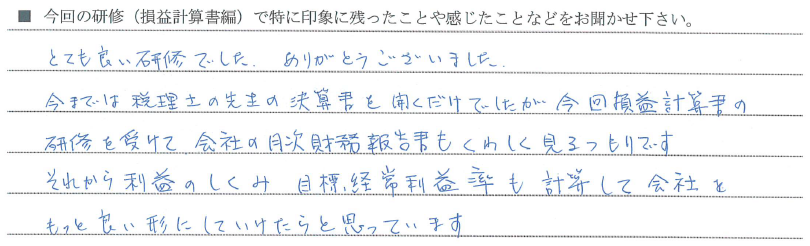 ■ 今回の研修（損益計算書編）で特に印象に残ったことや感じたことなどをお聞かせ下さい。
とても良い研修でした。ありがとうございました。
今までは税理士の先生の決算書を聞くだけでしたが今回損益計算書の
研修を受けて、会社の月次財務報告書もくわしく見るつもりです
それから利益のしくみ 目標、経常利益率も計算して会社を
もっと良い形にしていけたらと思っています